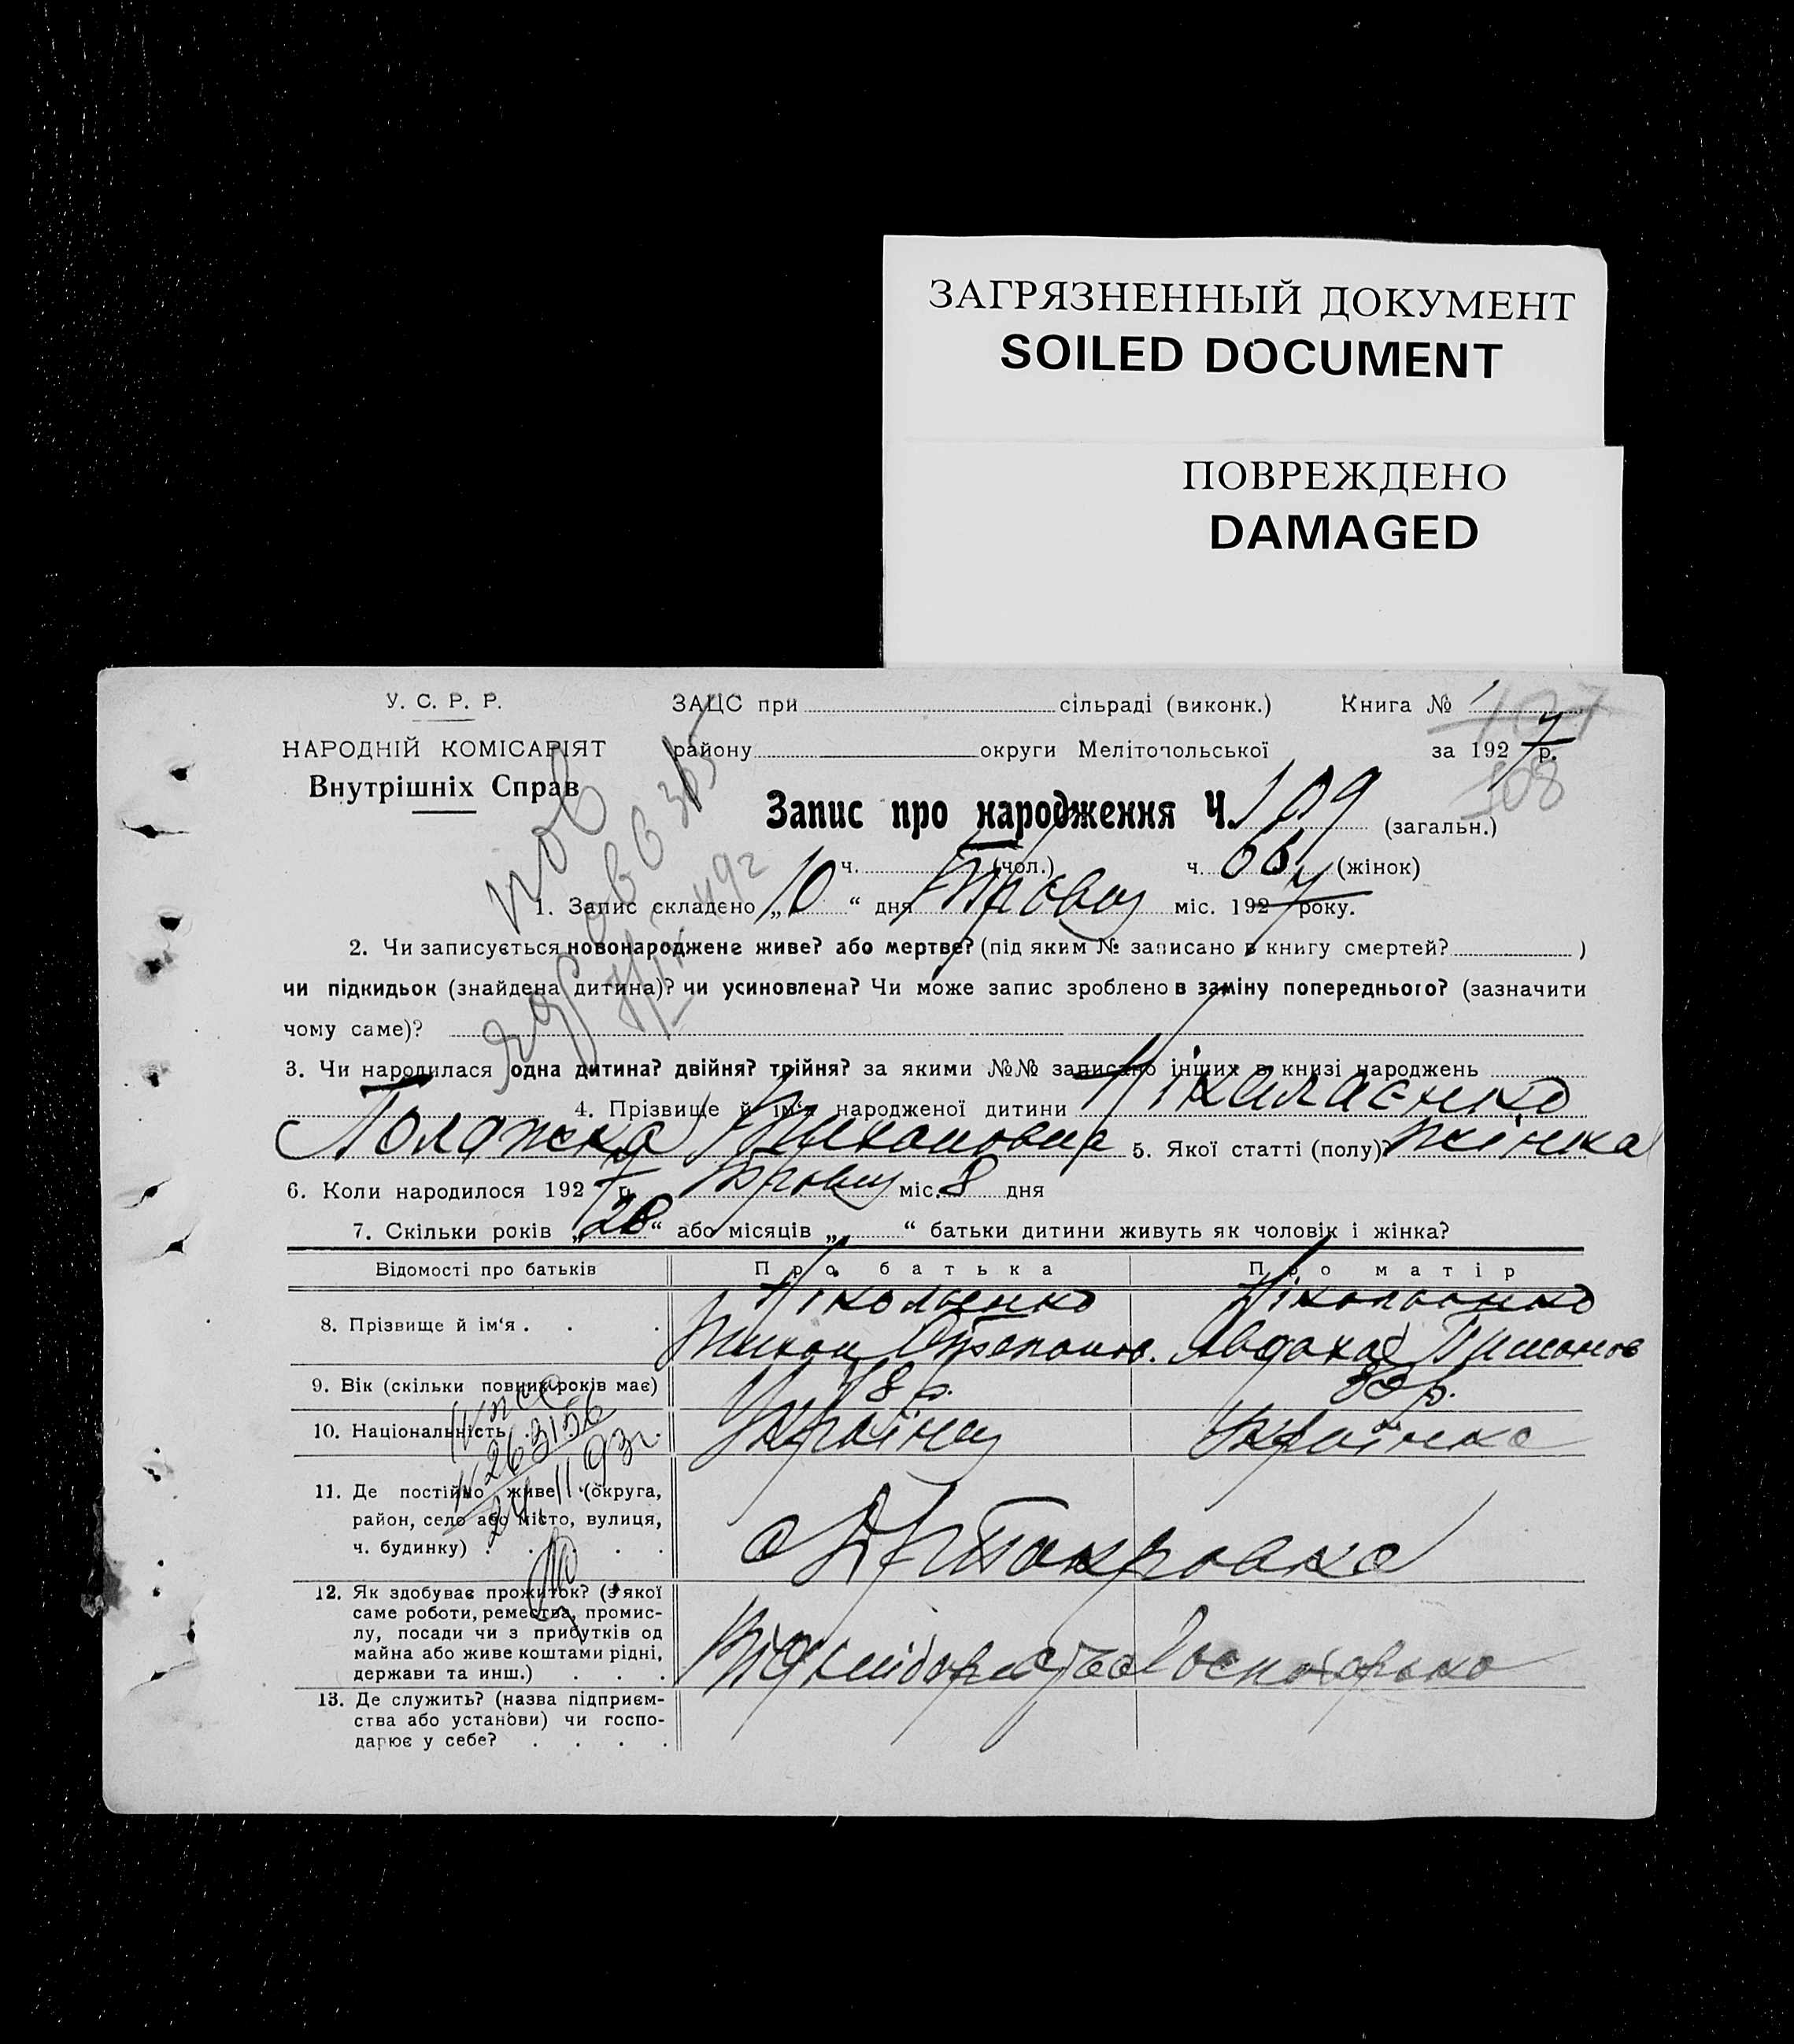 ЗАГРЯЗНЕННЫЙ ДОКУМЕНТ
SOILED DOCUMENT
ПОВРЕЖДЕНО
DAMAGED
У. С. Р. Р.
НАРОДНІЙ КОМІСАРІЯТ
Внутрішніх Справ
ЗАЦС при сільраді (виконк.) Книга № 1
району округи Мелітопольської за 1927 р.
107
108
Запис про народження Ч. 109 (загальн.)
ч. (чол.) ч. 66 (жінок)
1. Запис складено „10“ дня міс. 1927 року.
2. Чи записується новонароджене живе? або мертве? (під яким № записано в книгу смертей? )
чи підкидьок (знайдена дитина)? чи усиновлена? Чи може запис зроблено в заміну попереднього? (зазначити
чому саме)?
3. Чи народилася одна дитина? двійня? трійня? за якими №№ записано інших в книзі народжень
4. Прізвище й ім‘я народженої дитини Ніколаєнко
Полажка Тихановна 5. Якої статті (полу)? жінка
6. Коли народилося 1927 р. міс. 8 дня
7. Скільки років „20“ або місяців „ “ батьки дитини живуть як чоловік і жінка?
Відомості про батьків Про батька Про матір
8. Прізвище й ім‘я . . . Ніколаєнко Ніколаєнко
Тихон Степанов. Явдоха Тимонов
9. Вік (скільки повних років має) 48 р. 39 р.
10. Національність . . . Українец Українка
263156
24.11.93г.
11. Де постійно живе (округа,
район, село або місто, вулиця,
ч. будинку) . . . . .
Покровка
12. Як здобуває прожиток? (з якої
саме роботи, ремества, промис-
лу, посади чи з прибутків од
майна або живе коштами рідні,
держави та инш.) . . .
Від хліборобства
13. Де служить? (назва підприєм-
ства або установи) чи госпо-
дарює у себе? . . . .